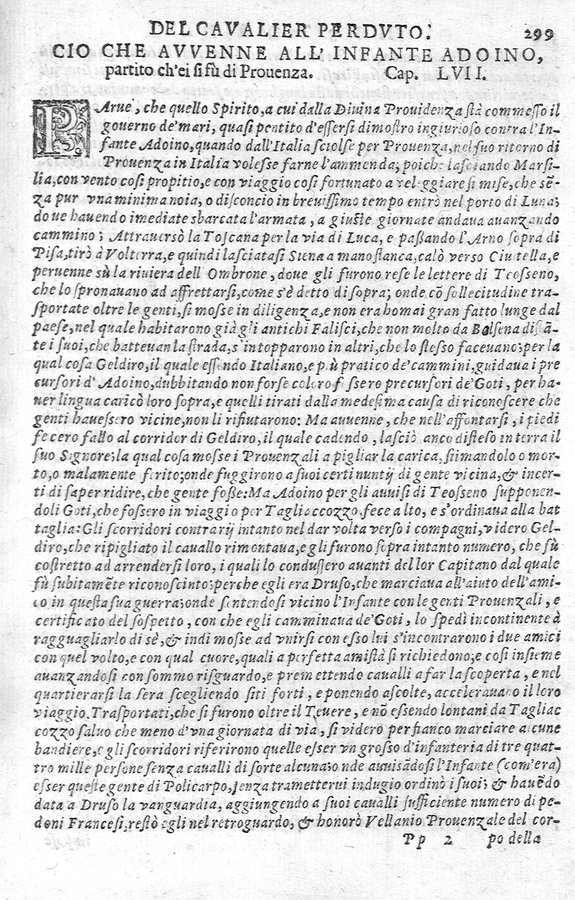 DEL CAVALIER PERDVTO. 299
CIO CHE AVVENNE ALL' INFANTE ADOINO,
partito ch'ei si fù di Prouenza. Cap. LVII.
PArue, che quello Spirito, a cui dalla Diuina Prouidenza stà commesso il
gouerno de' mari, quasi pentito d'essersi dimostro ingiurioso contra l'In-
fante Adoino, quando dall'Italia sciolse per Prouenza, nel suo ritorno di
Prouenza in Italia volesse farne l'ammenda; poiche lasciando Marsi-
lia, con vento così propitio, e con viaggio così fortunato a veleggiare si mise, che sẽ-
za pur vna minima noia, o disconcio in breuissimo tempo entrò nel porto di Luna;
doue hauendo imediate sbarcata l'armata, a giuste giornate andaua auanzando
cammino; Attrauersò la Toscana per la via di Luca, e passando l'Arno sopra di
Pisa, tirò à Volterra, e quindi lasciatasi Siena a mano stanca, calò verso Ciuitella, e
peruenne sù la riuiera dell' Ombrone, doue gli furono rese le lettere di Teosseno,
che lo spronauano ad affrettarsi, come s'è detto di sopra; onde cõ sollecitudine tra-
sportate oltre le genti, si mosse in diligenza, e non era homai gran fatto lunge dal
paese, nel quale habitarono già gli antichi Falisci, che non molto da Bolsena distã-
te i suoi, che batteuan la strada, s'intopparono in altri, che lo stesso faceuano; per la
qual cosa Geldiro, il quale essendo Italiano, e più pratico de' cammini, guidaua i pre
cursori d' Adoino, dubbitando non forse coloro fossero precursori de' Goti, per ha-
uer lingua caricò loro sopra, e quelli tirati dalla medesima causa di riconoscere che
genti hauessero vicine, non li rifiutarono: Ma auuenne, che nell'affrontarsi, i piedi
fecero fallo al corridor di Geldiro, il quale cadendo, lasciò anco disteso in terra il
suo Signore; la qual cosa mosse i Prouenzali a pigliar la carica, stimandolo o mor-
to, o malamente ferito; onde fuggirono a suoi certi nuntij di gente vicina, & incer-
ti di saper ridire, che gente fosse: Ma Adoino per gli auuisi di Teosseno supponen-
doli Goti, che fossero in viaggio per Tagliaccozzo, fece alto, e s'ordinaua alla bat
taglia: Gli scorridori contrarij intanto nel dar volta verso i compagni, videro Gel-
diro, che ripigliato il cauallo rimontaua, e gli furono sopra in tanto numero, che fù
costretto ad arrendersi loro, i quali lo condussero auanti del lor Capitano dal quale
fù subitamẽte riconosciuto; perche egli era Druso, che marciaua all'aiuto dell'ami-
co in questa sua guerra; onde sentendosi vicino l'Infante con le genti Prouenzali, e
certificato del sospetto, con che egli camminaua de' Goti, lo spedì incontinente à
ragguagliarlo di sè, & indi mosse ad vnirsi con esso lui s'incontrarono i due amici
con quel volto, e con qual cuore, quali a perfetta amistà si richiedono; e così insieme
auanzandosi con sommo risguardo, e premettendo caualli a far la scoperta, e nel
quartierarsi la sera scegliendo siti forti, e ponendo ascolte, accelerauano il loro
viaggio. Trasportati, che si furono oltre il Teuere, e nõ essendo lontani da Tagliac
cozzo saluo che meno d'vna giornata di via, si videro per fianco marciare alcune
bandiere, e gli scorridori riferirono quelle esser vn grosso d'infanteria di tre quat-
tro mille persone senza caualli di sorte alcuna: onde auuisãdosi l'Infante (com'era)
esser queste gente di Policarpo, senza trametterui indugio ordinò i suoi; & hauẽdo
data a Druso la vanguardia, aggiungendo a suoi caualli sufficiente numero di pe-
doni Francesi, restò egli nel retroguardo, & honorò Vellanio Prouenzale del cor-
Pp 2 po della